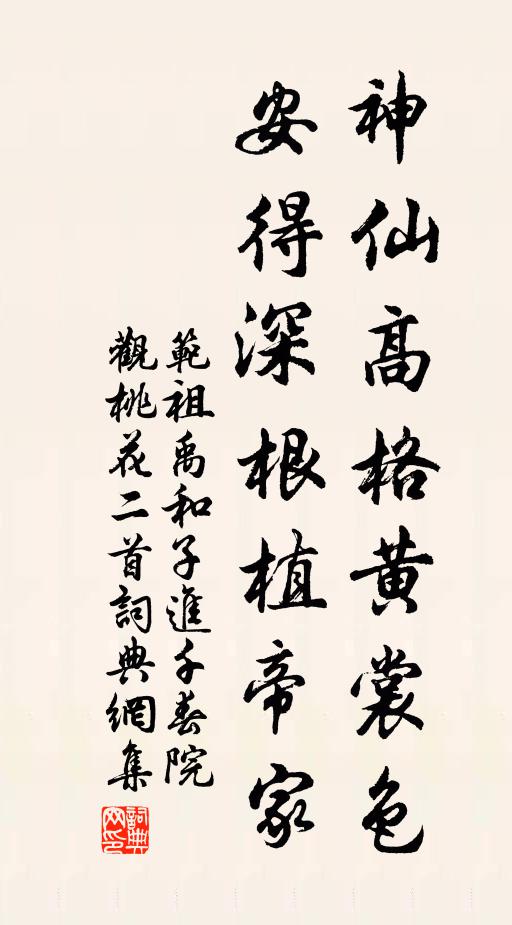 神仙高格黄裳色
安得深根植帝家
範祖禹和子進千春院
觀桃花二首詞典網集
詞典网印